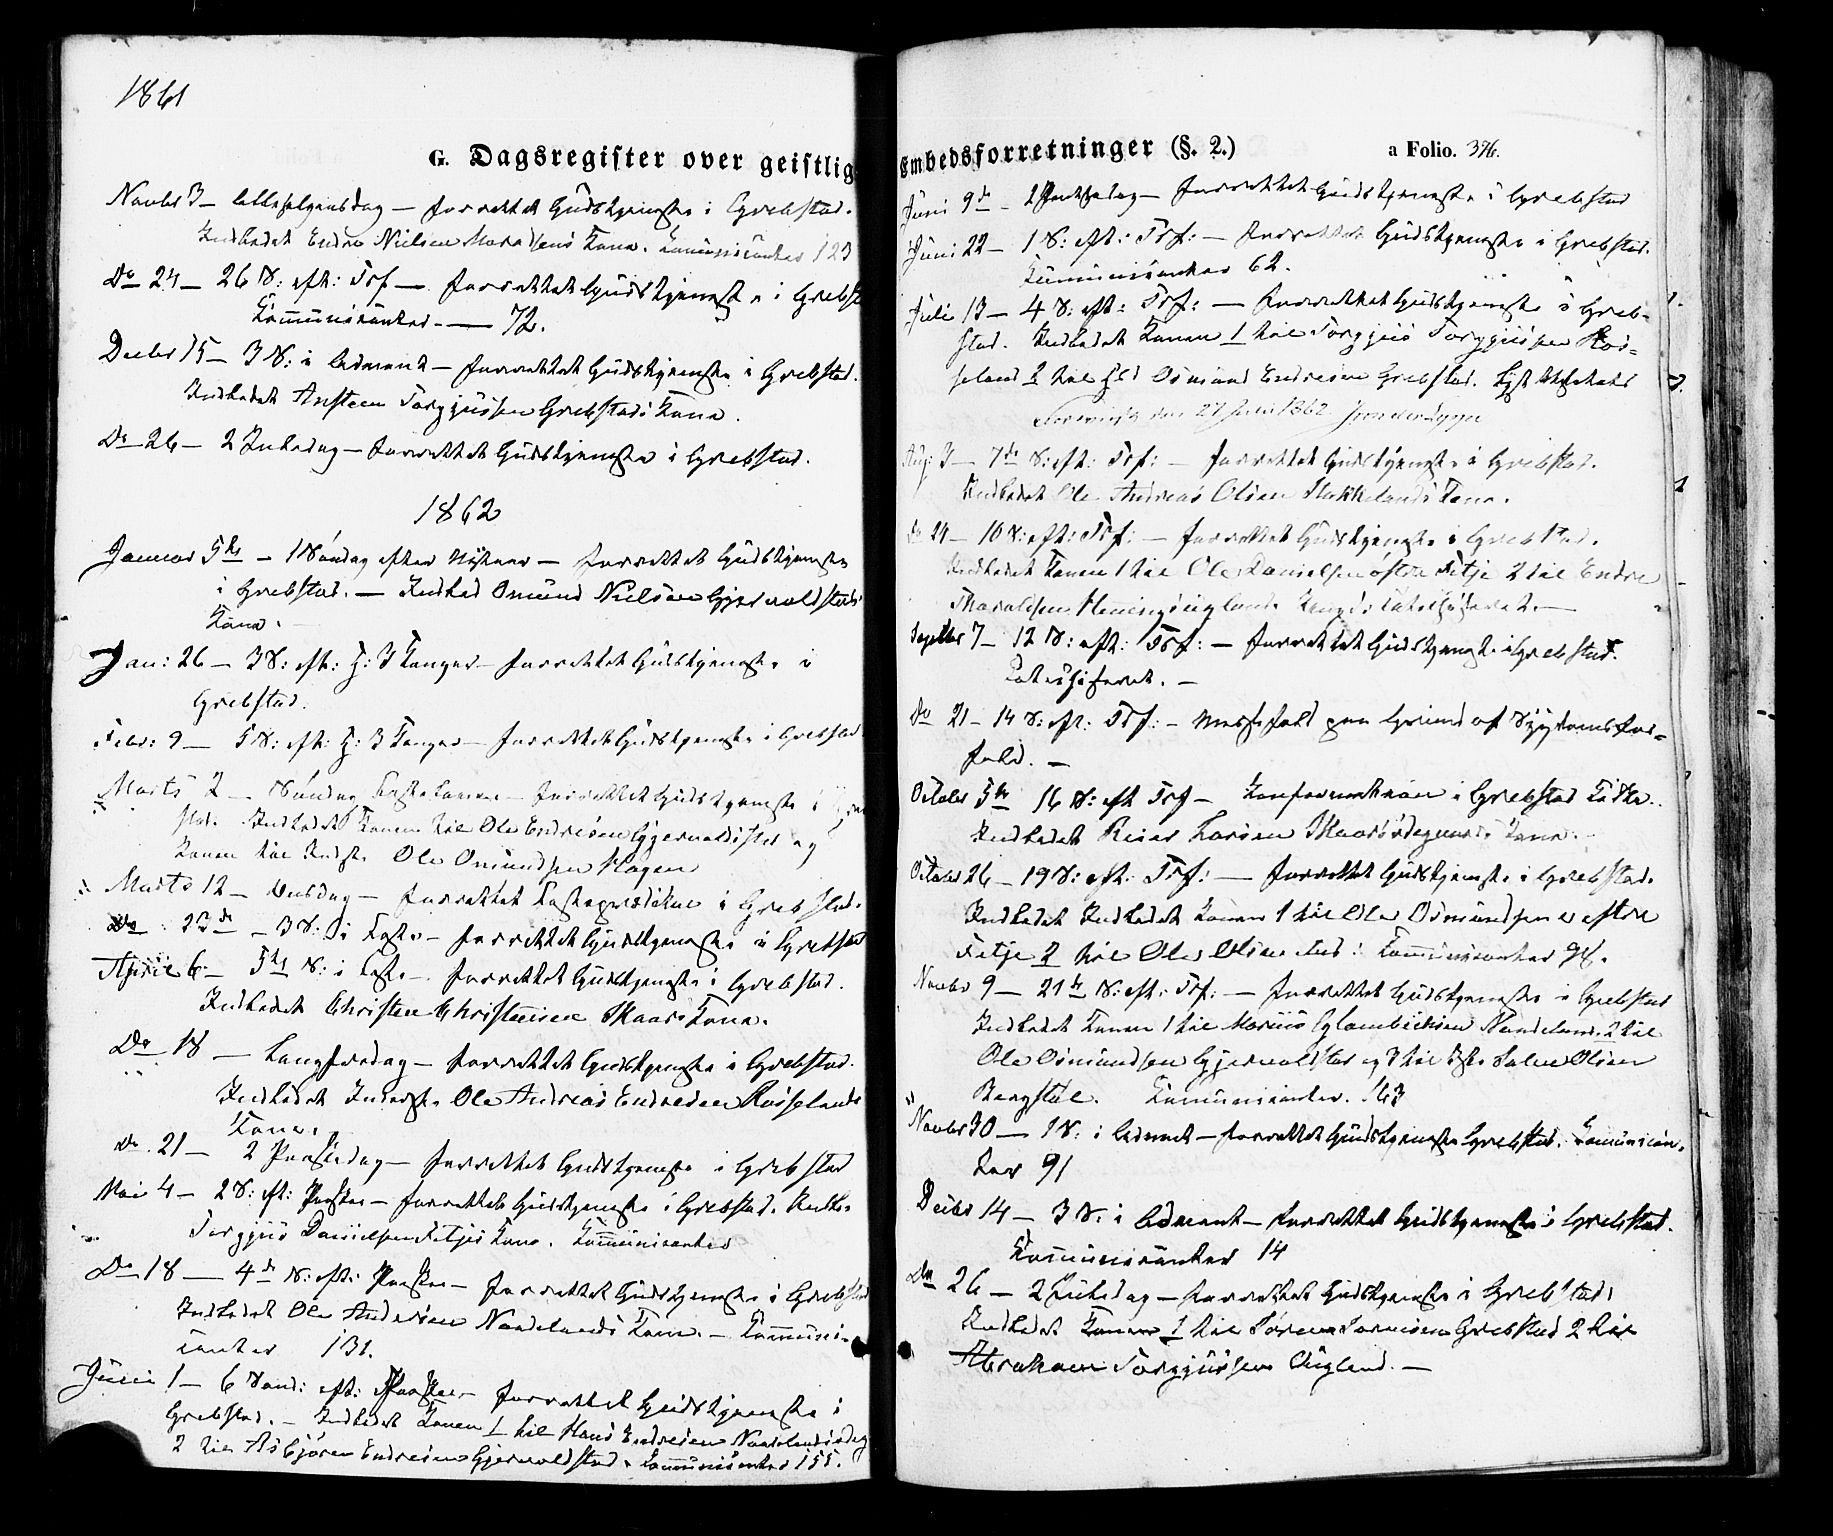 1861
G. Dagsregister over geistlig
Novbr 3 – Allehelgensdag – forrettet Gudstjeneste i Grebstad.
Indledet Endre Nielsen Kone. Communicanter 123
Do 24 – 26 S: eft: Trf – forrettet Gudstjeneste i Grebst
Communicanter – 72.
Decbr 15 – 3 S: i Advent – forrettet Gudstjeneste i Grebstad.
Indledet Ansteen Torgjussen Grebstads Kone.
Do 26 – 2 Juledag – forrettet Gudstjeneste i Grebstad.
1862
Januar 5te – 1 Søndag efter Nytaar – forrettet Gudstjeneste
i Grebstad. – Indled Osmund Nielsen Gjervoldstads
Kone.
Jan: 26 – 3 S: eft: H: 3 Konger – forrettet Gudstjeneste i
Grebstad.
Febr: 9 – 5 S: eft: H: 3 Konger – forrettet Gudstjeneste i Grebstad
Marts 2 – Søndag Fastelavn – forrettet Gudstjeneste i Greb
stad. Indledet Konen til Ole Endresen Gjervoldstad og
Konen til Ole Osmundsen Hagen
Marts 12 – Onsdag – forrettet Fasteprædiken i Grebstad.
Do 23de – 3 S: i Faste – forrettet Gudstjeneste i Grebstad
April 6 – 5te S: i Faste – forrettet Gudstjeneste i Grebstad.
Indledet Christen Christensen Skaars Kone.
Do 18 – Langfredag – forrettet Gudstjeneste i Grebstad.
Indledet Ole Andreas Endresen Rosselands
Kone.
Do 21 – 2 Paaskedag – forrettet Gudstjeneste i Grebstad
Mai 4 – 2 S: eft: Paaske – forrettet Gudstjeneste i Grebstad. Indled
Torgjus Danielsen Fetjes Kone. Communicanter
Do 18 – 4de S: eft: Paaske – forrettet Gudstjeneste i Grebstad
Indledet Ole Andersen Naadelands Kone. – Communi-
canter 131.
Juni 1 – 6 Sønd: eft: Paaske – forrettet Gudstjeneste i
Grebstad. – Indledet Konen 1 til Hans Endresen
2 til Asbjørn Endresen Gjervoldstad. Communicanter 155.
Embedsforretninger (§. 2.) a Folio. 376.
Juni 9de – 2 Pintsedag – forrettet Gudstjeneste i Grebstad
Juni 22 – 1 S: eft: Trf: – forrettet Gudstjeneste i Grebstad.
Communicanter 62.
Juli 13 – 4 S: eft: Trf: – forrettet Gudstjeneste i Greb-
stad. Indledet Konen 1 til Torgjus Torgjussen Ros-
seland 2 til Osmund Endresen Grebstad.
27 Juni 1862.
Aug: 3 – 7de S: eft: Trf: – forrettet Gudstjeneste i Grebstad.
Indledet Ole Andreas Olsen Stokkelands Kone.
Do 24 – 10 S: eft: Trf: – forrettet Gudstjeneste i Grebstad.
Indledet Konen 1 til Ole Danielsen østre Fetje 2 til Endre
Thoralfsen
Septbr 7 – 12 S: eft: Trf: – forrettet Gudstjeneste i Grebstad.
Catechiseret. –
Do 21 – 14 S: eft: Trf: – Messefald paa Grund af Sygdomsfor-
fald. –
October 5te 16 S: eft Trf – Confirmation i Grebstad Kirke.
Indledet Reier Larsen Kone.
October 26 – 19 S: eft: Trf: – forrettet Gudstjeneste i Grebstad.
Indledet Indledet Konen 1 til Ole Osmundsen østre
Fetje 2 til Ole Olsen Communicanter
Novbr 9 – 21de S: eft: Trf: – forrettet Gudstjeneste i Grebstad
Indledet Konen 1 til Marius 2 til
Ole Osmundsen Gjervoldstad og 3 til Salve Olsen
Bergstøl. Communicanter. 163
Novbr 30 – 1 S: i Advent – forrettet Gudstjeneste Grebstad. Communican-
ter 91
Decbr 14 – 3 S: i Advent – forrettet Gudstjeneste i Grebstad.
Communicanter 14
Do 26 – 2 Juledag – forrettet Gudstjeneste i Grebstad.
Indledet Konen 1 til Søren Grebstad 2 til
Abraham Torgjussen Augland. –